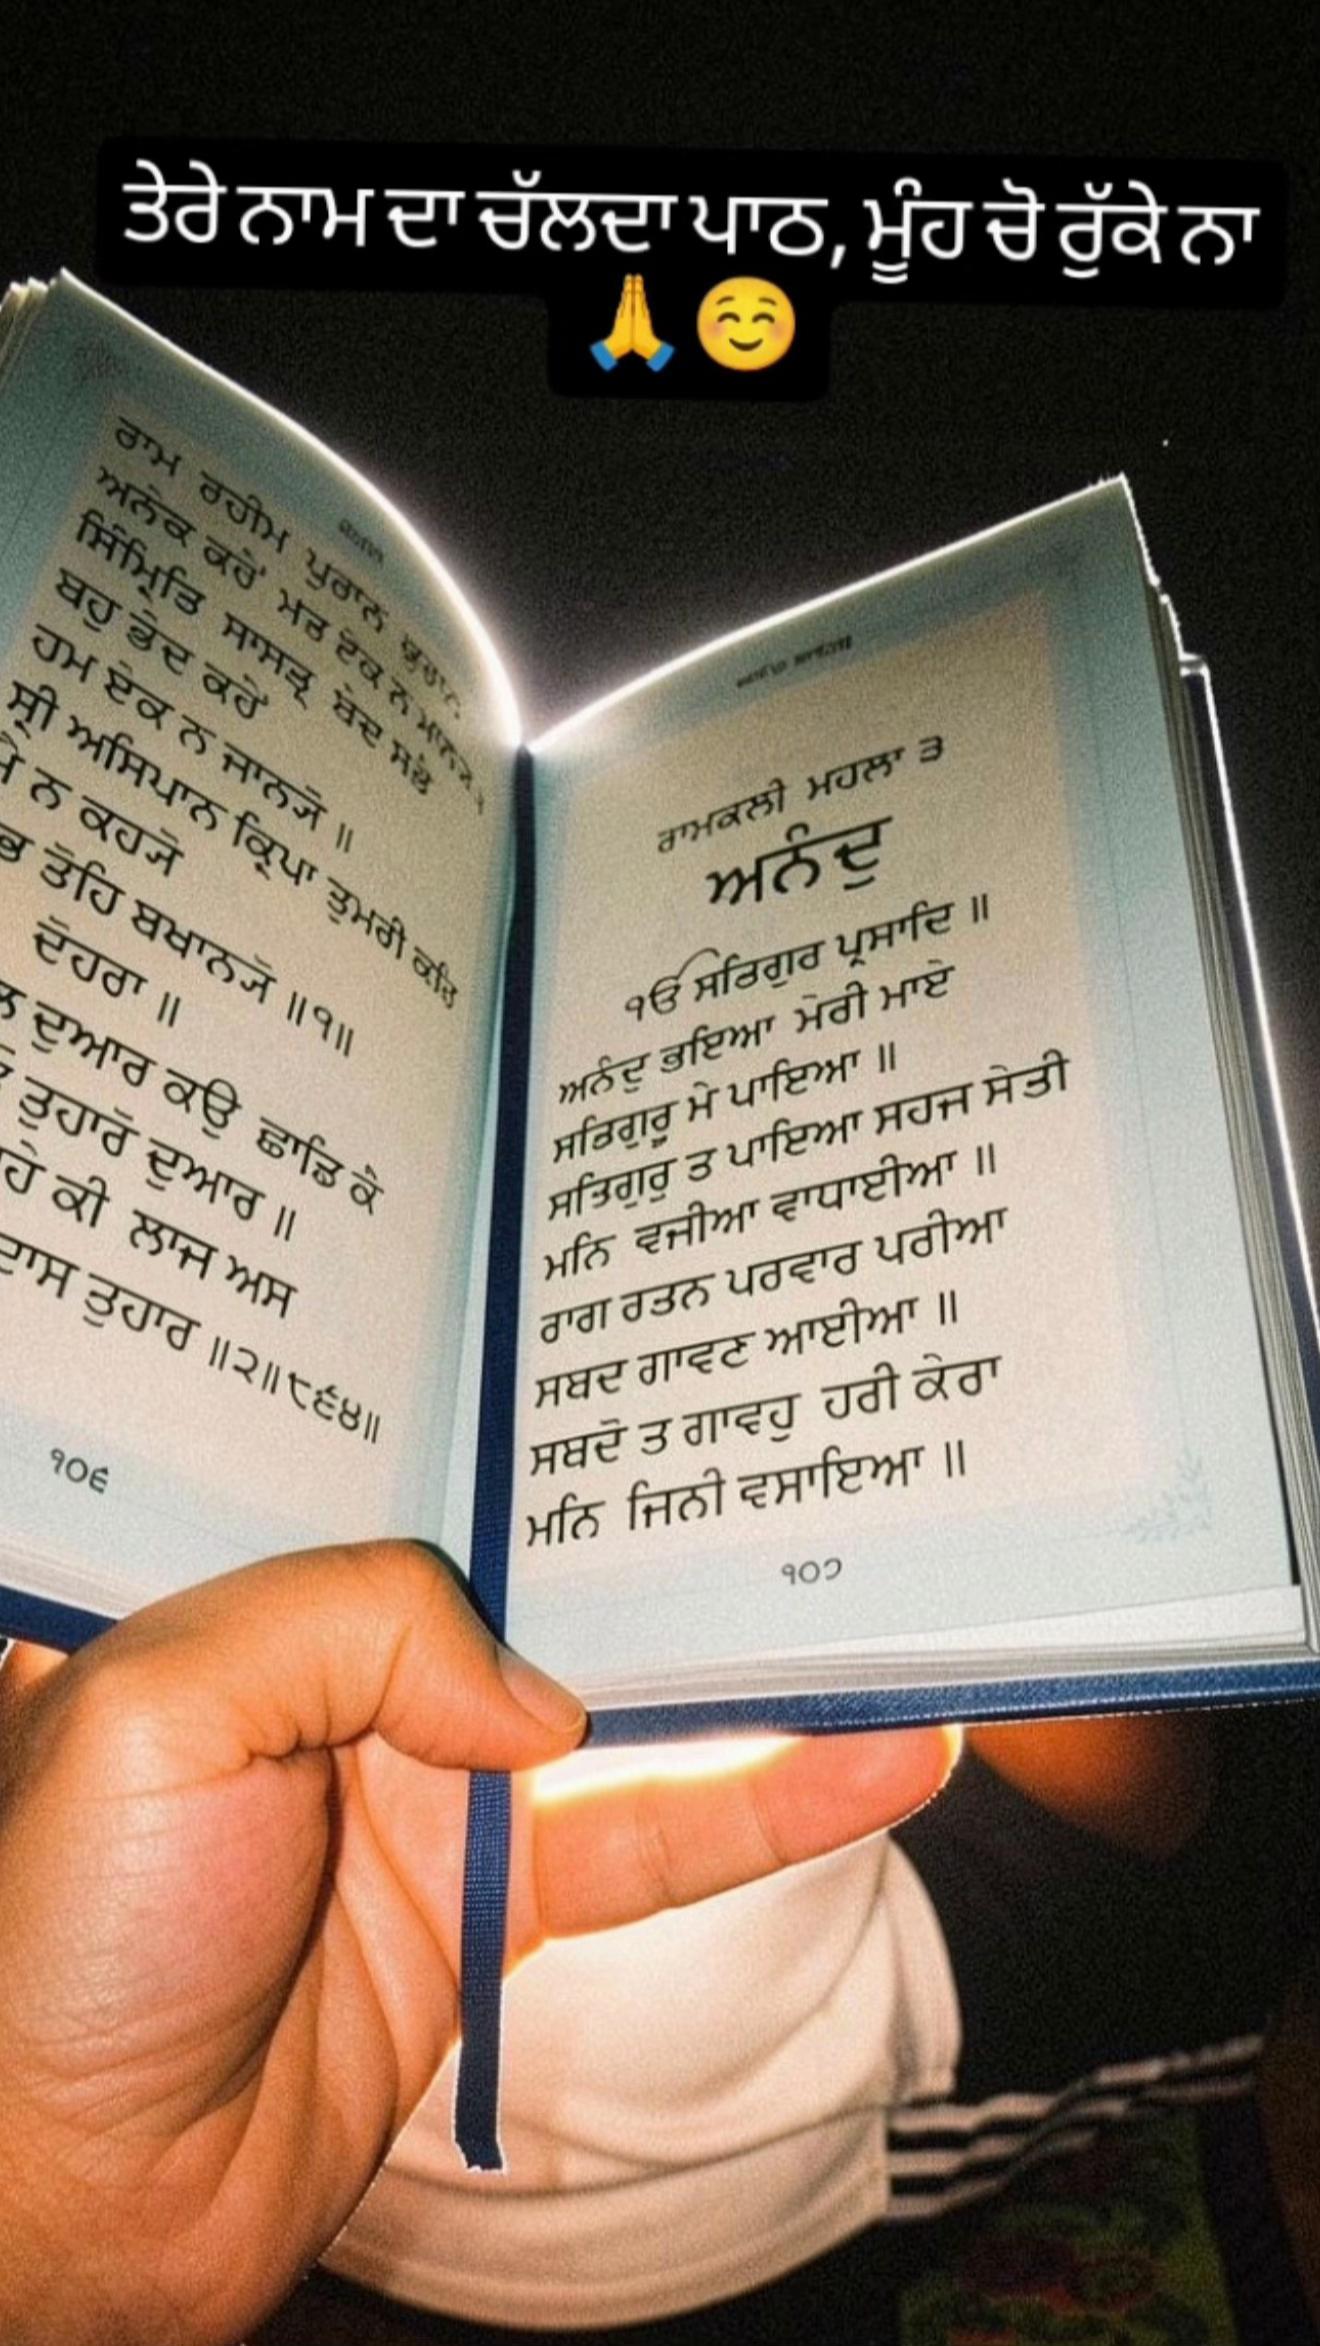 ਤੇਰੇ ਨਾਮ ਦਾ ਚੱਲਦਾ ਪਾਠ, ਮੂੰਹ ਚੋ ਰੁੱਕੇ ਨਾ
🙏☺️
ਰਾਮ ਰਹੀਮ ਪੁਰਾਨ ਕੁਰਾਨ
ਅਨੇਕ ਕਹੈਂ ਮਤ ਏਕ ਨ ਮਾਨਯੋ
ਸਿੰਮ੍ਰਿਤਿ ਸਾਸਤ੍ਰ ਬੇਦ ਸਭੈ
ਬਹੁ ਭੇਦ ਕਹੈਂ
ਹਮ ਏਕ ਨ ਜਾਨਯੋ ॥
ਸ੍ਰੀ ਅਸਿਪਾਨ ਕ੍ਰਿਪਾ ਤੁਮਰੀ ਕਰਿ
ਮੈ ਨ ਕਹਯੋ
ਤੋਹਿ ਬਖਾਨਯੋ ॥੧॥
ਦੋਹਰਾ ॥
ਦੁਆਰ ਕਉ ਛਾਡਿ ਕੈ
ਤੁਹਾਰੋ ਦੁਆਰ ॥
ਕੀ ਲਾਜ ਅਸ
ਦਾਸ ਤੁਹਾਰ ॥੨॥੮੬੪॥
੧੦੬
ਅਨੰਦੁ ਸਾਹਿਬ
ਰਾਮਕਲੀ ਮਹਲਾ ੩
ਅਨੰਦੁ
ੴ ਸਤਿਗੁਰ ਪ੍ਰਸਾਦਿ ॥
ਅਨੰਦੁ ਭਇਆ ਮੇਰੀ ਮਾਏ
ਸਤਿਗੁਰੂ ਮੈ ਪਾਇਆ ॥
ਸਤਿਗੁਰੁ ਤ ਪਾਇਆ ਸਹਜ ਸੇਤੀ
ਮਨਿ ਵਜੀਆ ਵਾਧਾਈਆ ॥
ਰਾਗ ਰਤਨ ਪਰਵਾਰ ਪਰੀਆ
ਸਬਦ ਗਾਵਣ ਆਈਆ ॥
ਸਬਦੋ ਤ ਗਾਵਹੁ ਹਰੀ ਕੇਰਾ
ਮਨਿ ਜਿਨੀ ਵਸਾਇਆ ॥
੧੦੭